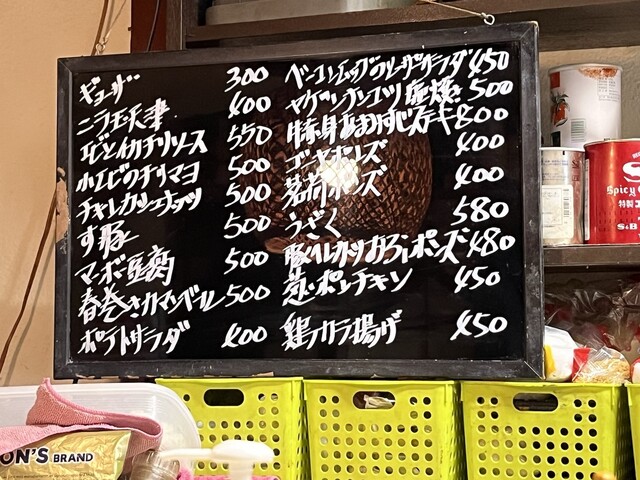 ギョーザ 300
ニラ玉天津 400
エビとイカチリソース 550
小エビのチリマヨ 500
チャレカシューナッツ 500
す豚 500
マーボ豆腐 500
春巻さカマンベール 500
ポテトサラダ 400
ベーコンエッグのシーザーサラダ 450
ヤゲンナンコツ塩焼 500
牛赤身あまわずびステーキ 800
ゴーヤポンズ 400
茗荷ポンズ 400
うざく 580
豚ヘレカツおろしポンズ 480
葱ポンチキン 450
鶏テカラ揚げ 450
Spicy C
特製
S&B
ON'S BRAND